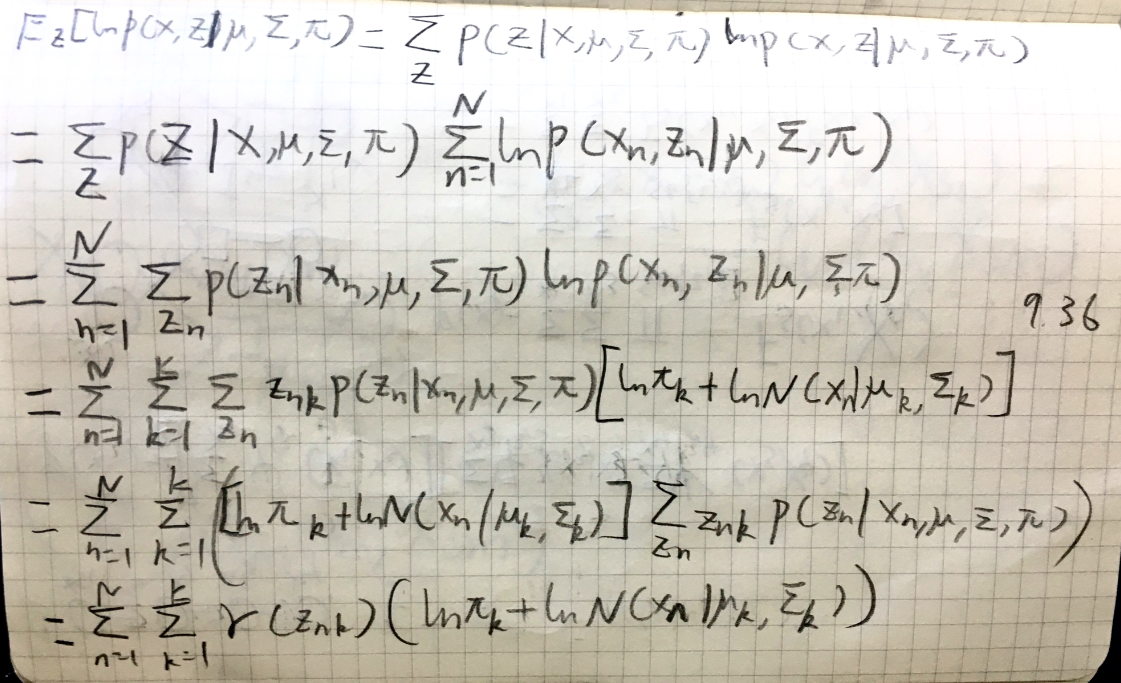 E_Z[ln p(x, z|μ, Σ, π) = Σ_Z p(z|x, μ, Σ, π) ln p(x, z|μ, Σ, π)
= Σ_Z p(Z|X, μ, Σ, π) Σ_{n=1}^{N} ln p(x_n, z_n|μ, Σ, π)
= Σ_{n=1}^{N} Σ_{z_n} p(z_n|x_n, μ, Σ, π) ln p(x_n, z_n|μ, Σ π)
9.36
= Σ_{n=1}^{N} Σ_{k=1}^{K} Σ_{z_n} z_{nk} p(z_n|x_n, μ, Σ, π) [ln π_k + ln N(x_n|μ_k, Σ_k)]
= Σ_{n=1}^{N} Σ_{k=1}^{K} ([ln π_k + ln N(x_n|μ_k, Σ_k)] Σ_{z_n} z_{nk} p(z_n|x_n, μ, Σ, π))
= Σ_{n=1}^{N} Σ_{k=1}^{K} γ(z_{nk}) (ln π_k + ln N(x_n|μ_k, Σ_k))